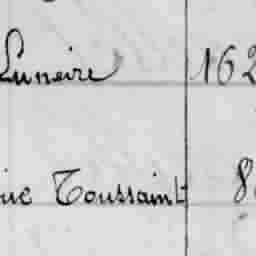 Luneire 162
Toussaint 8